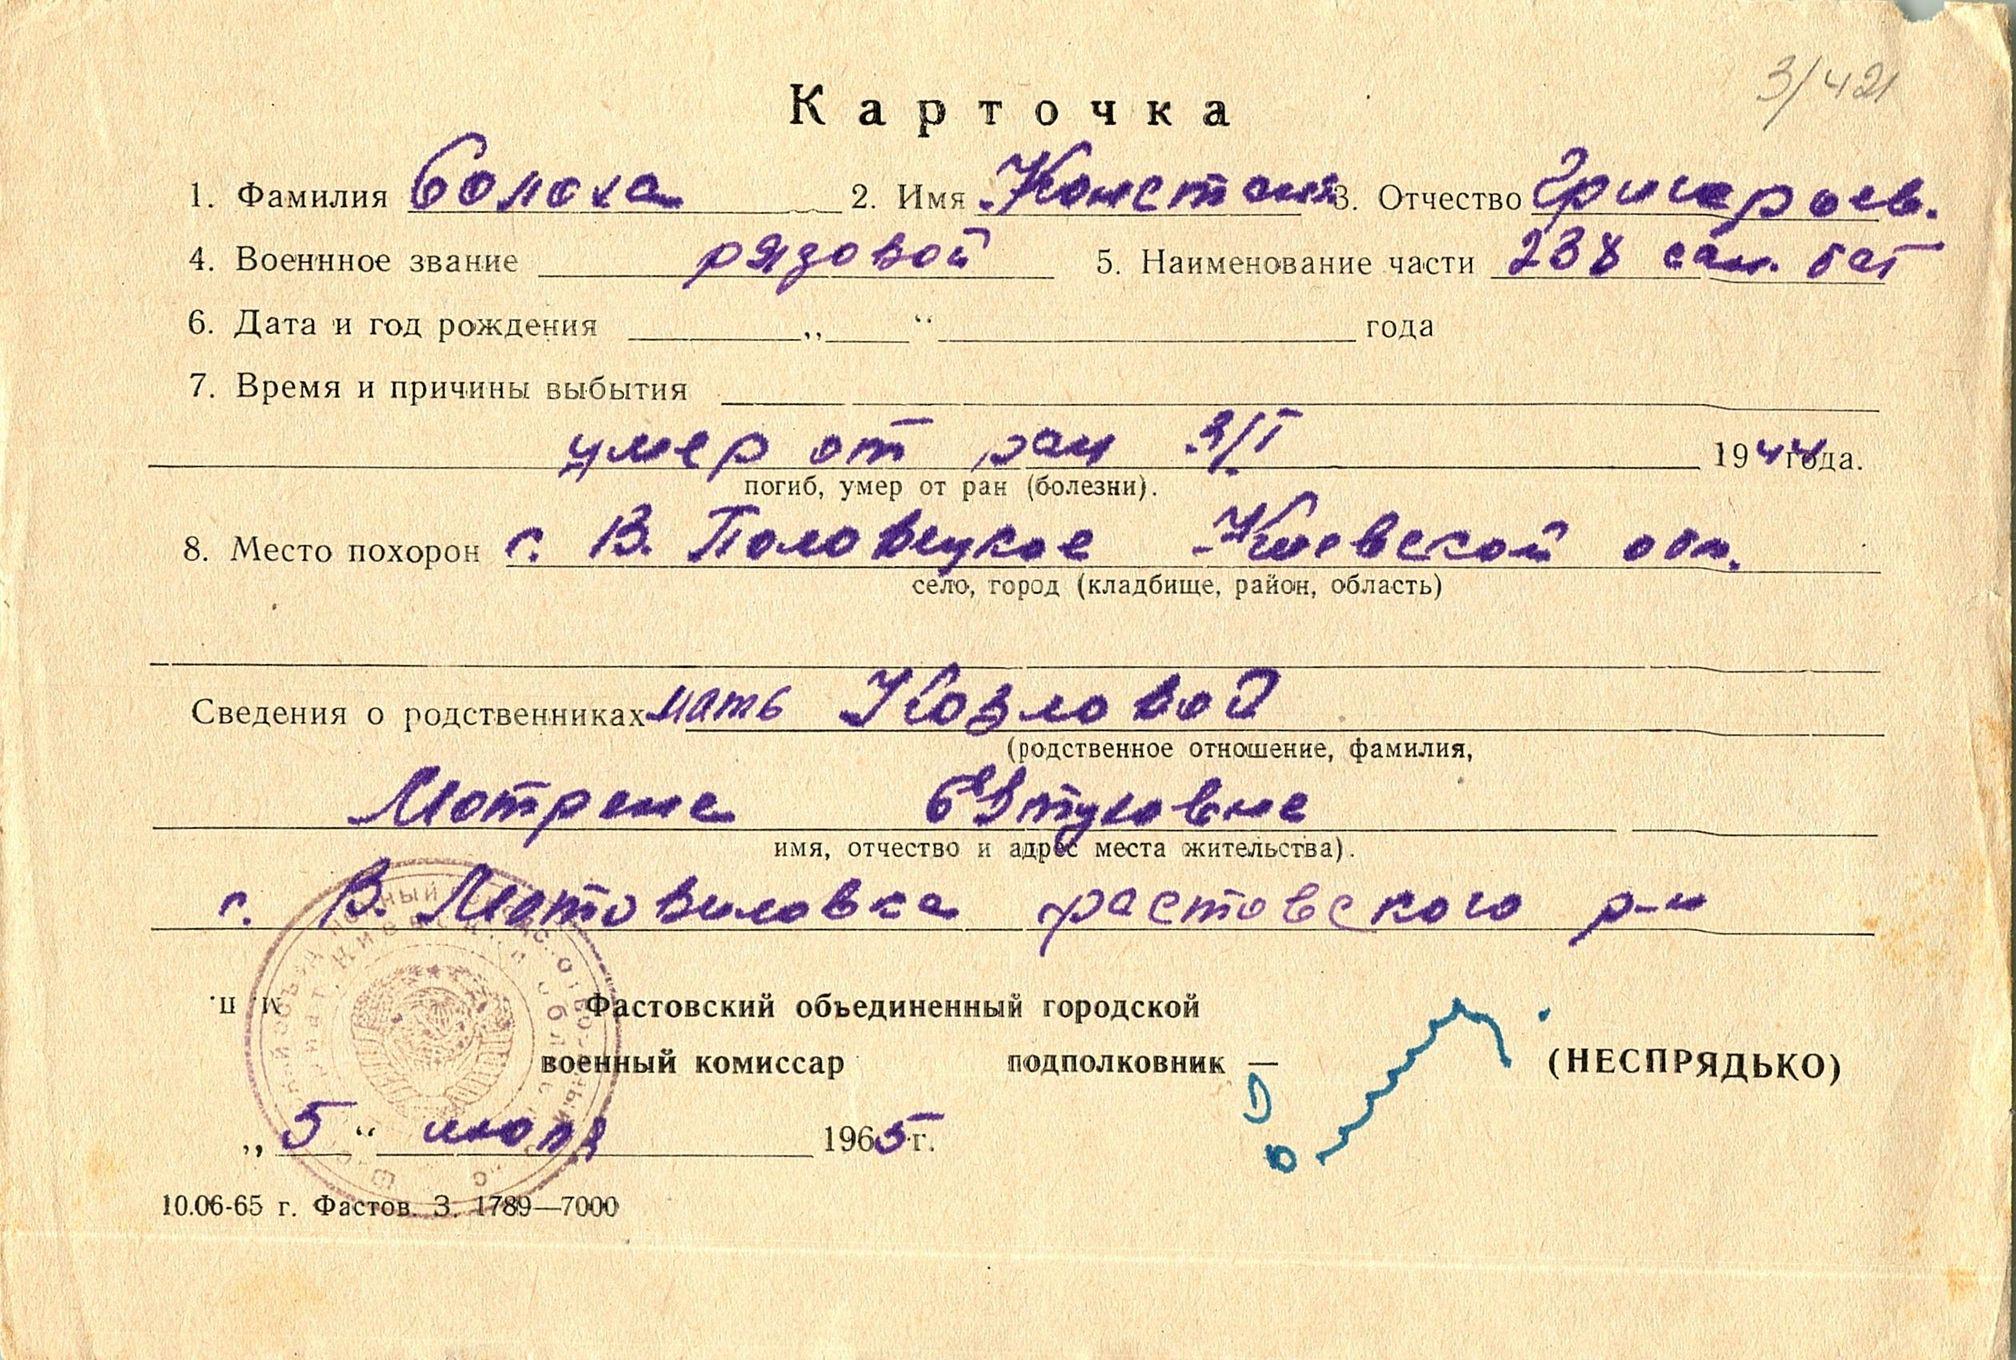 3/421
Карточка
1. Фамилия Солоха 2. Имя Констант 3. Отчество Григорьев.
4. Военнное звание рядовой 5. Наименование части 238 сан. бат
6. Дата и год рождения „ “ года
7. Время и причины выбытия
умер от ран 3/I 1944 года.
погиб, умер от ран (болезни).
8. Место похорон с. В. Половецкое Киевской обл.
село, город (кладбище, район, область)
Сведения о родственниках мать Козловой
(родственное отношение, фамилия,
Мотрене Евтуховне
имя, отчество и адрес места жительства).
с. В. Мотовиловка Фастовского р-н
Фастовский объединенный городской
военный комиссар подполковник — (НЕСПРЯДЬКО)
„ 5 “ июля 1965 г.
10.06-65 г. Фастов. З. 1789—7000